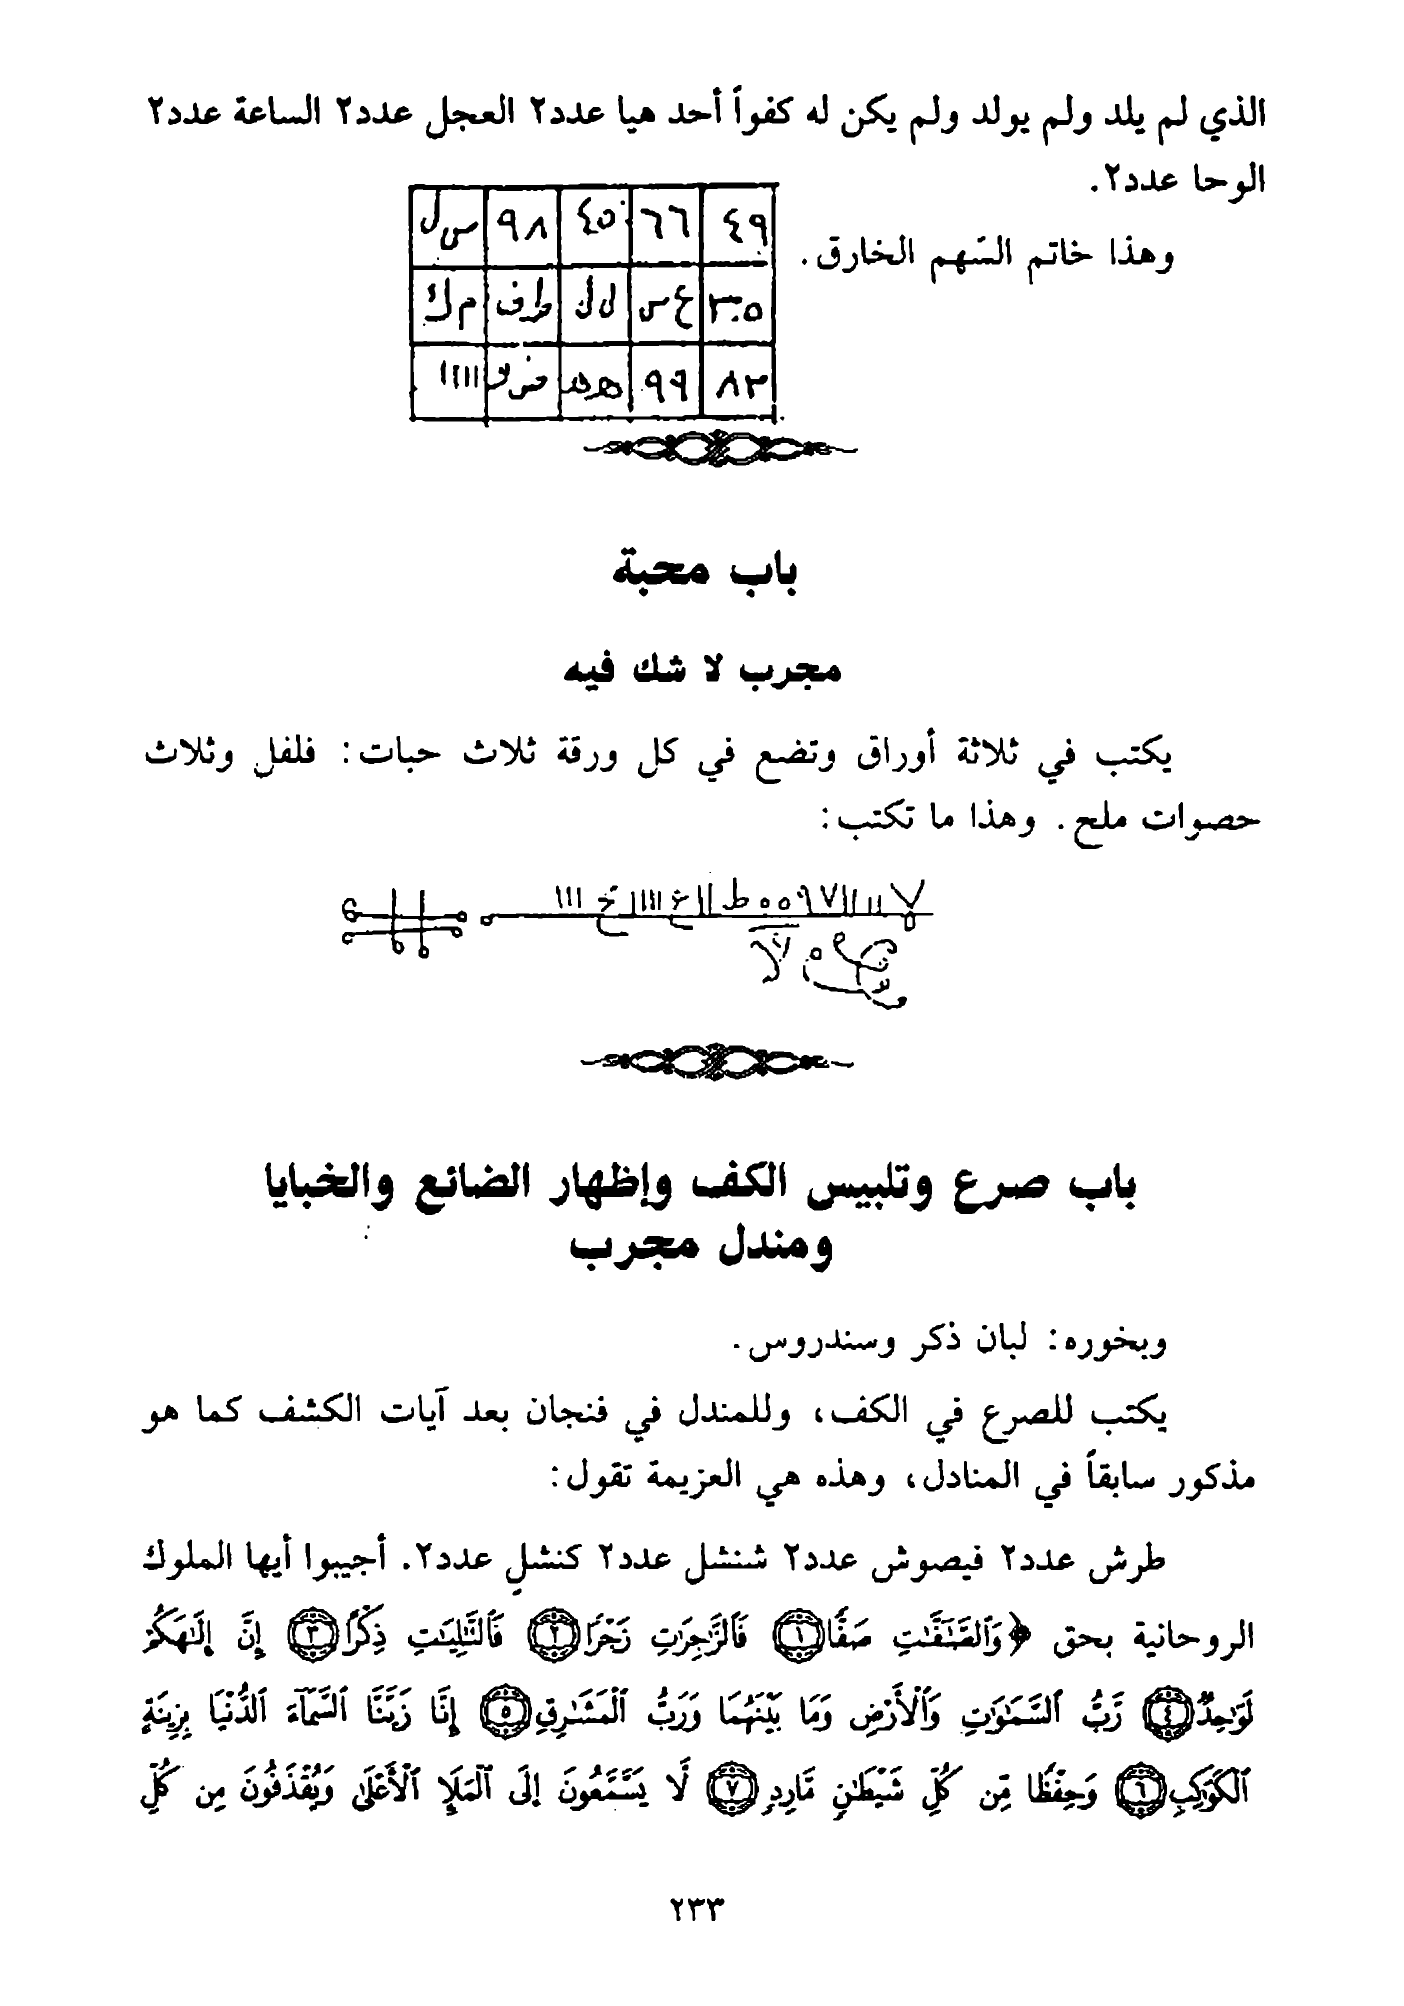 الذي لم يلد ولم يولد ولم يكن له كفواً أحد هيا عدد٢ العجل عدد٢ الساعة عدد٢
الوحا عدد٢.
وهذا خاتم السّهم الخارق.
٤٩ ٦٦ ٤٥ ٩٨ س ل
٣٠٥ ع س ل ل ط ف م ك
٨٣ ٩٩ هـ هـ
باب محبة
مجرب لا شك فيه
يكتب في ثلاثة أوراق وتضع في كل ورقة ثلاث حبات: فلفل وثلاث
حصوات ملح. وهذا ما تكتب:
باب صرع وتلبيس الكف وإظهار الضائع والخبايا
ومندل مجرب
وبخوره: لبان ذكر وسندروس.
يكتب للصرع في الكف، وللمندل في فنجان بعد آيات الكشف كما هو
مذكور سابقاً في المنادل، وهذه هي العزيمة تقول:
طرش عدد٢ فيصوش عدد٢ شنشل عدد٢ كنشلٍ عدد٢. أجيبوا أيها الملوك
الروحانية بحق ﴿وَٱلصَّٰٓفَّٰتِ صَفًّا ١ فَٱلزَّٰجِرَٰتِ زَجْرًا ٢ فَٱلتَّٰلِيَٰتِ ذِكْرًا ٣ إِنَّ إِلَٰهَكُمْ
لَوَٰحِدٌ ٤ رَّبُّ ٱلسَّمَٰوَٰتِ وَٱلْأَرْضِ وَمَا بَيْنَهُمَا وَرَبُّ ٱلْمَشَٰرِقِ ٥ إِنَّا زَيَّنَّا ٱلسَّمَآءَ ٱلدُّنْيَا بِزِينَةٍ
ٱلْكَوَاكِبِ ٦ وَحِفْظًا مِّن كُلِّ شَيْطَٰنٍ مَّارِدٍ ٧ لَّا يَسَّمَّعُونَ إِلَى ٱلْمَلَإِ ٱلْأَعْلَىٰ وَيُقْذَفُونَ مِن كُلِّ
٢٣٣